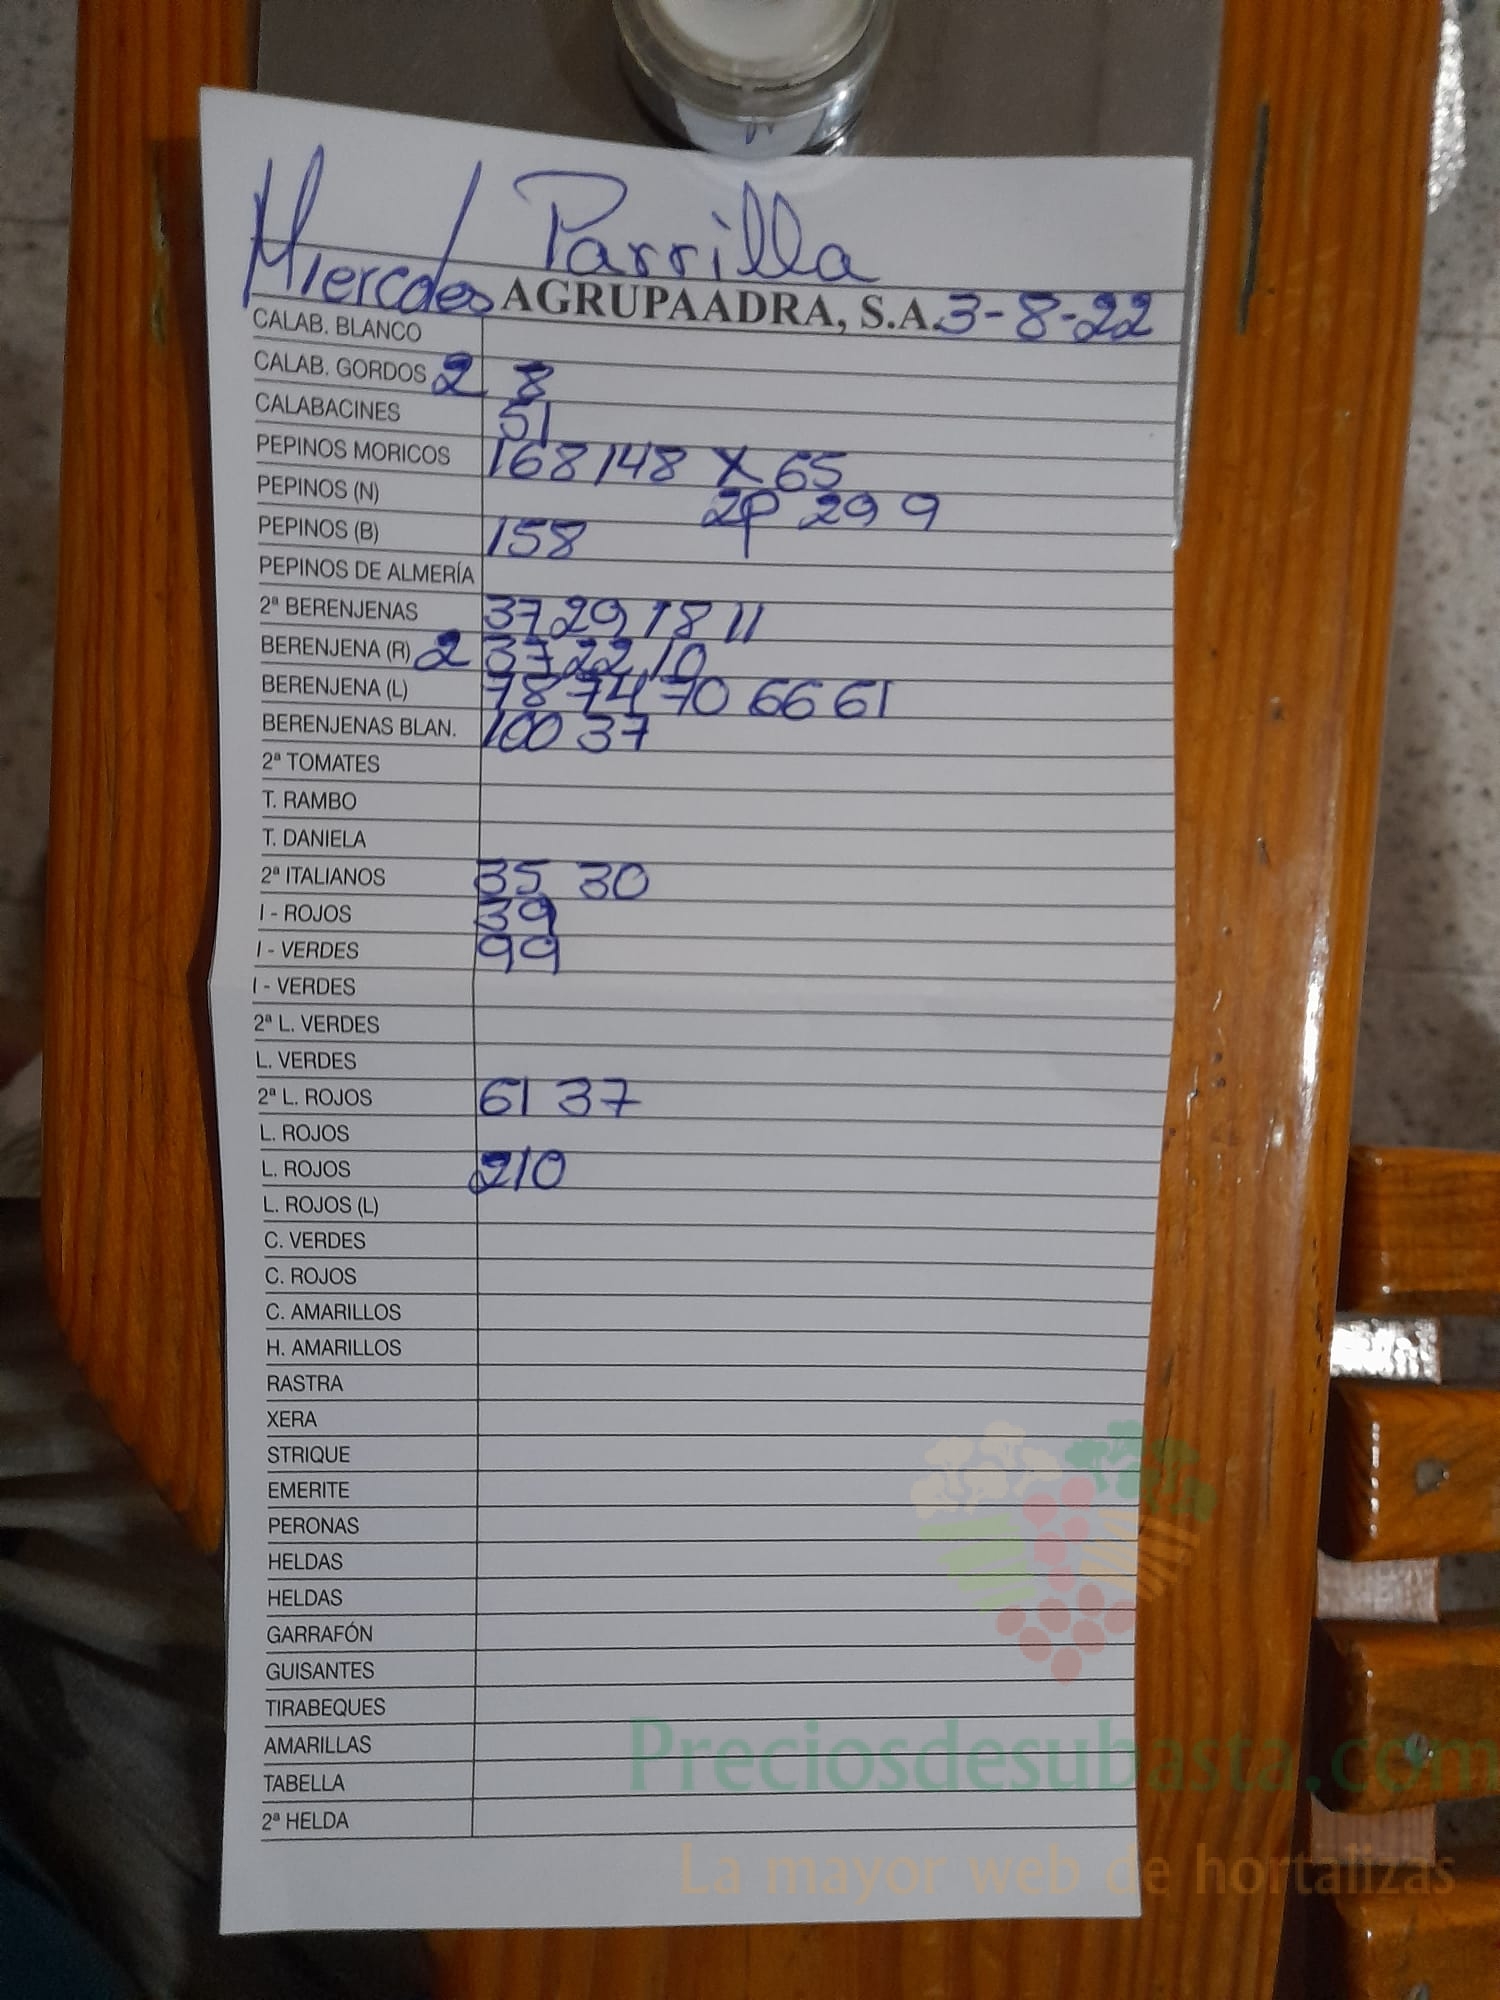 Miercoles Parrilla
AGRUPAADRA, S.A. 3-8-22
CALAB. BLANCO
CALAB. GORDOS 2 8
CALABACINES 51
PEPINOS MORICOS 168 148 X 65
PEPINOS (N) 2P 29 9
PEPINOS (B) 158
PEPINOS DE ALMERÍA
2ª BERENJENAS 37 29 18 11
BERENJENA (R) 2 37 22 10
BERENJENA (L) 78 74 70 66 61
BERENJENAS BLAN. 100 37
2ª TOMATES
T. RAMBO
T. DANIELA
2ª ITALIANOS 35 30
I - ROJOS 39
I - VERDES 99
I - VERDES
2ª L. VERDES
L. VERDES
2ª L. ROJOS 61 37
L. ROJOS
L. ROJOS 210
L. ROJOS (L)
C. VERDES
C. ROJOS
C. AMARILLOS
H. AMARILLOS
RASTRA
XERA
STRIQUE
EMERITE
PERONAS
HELDAS
HELDAS
GARRAFÓN
GUISANTES
TIRABEQUES
AMARILLAS
TABELLA
2ª HELDA
Preciosdesubasta.com
La mayor web de hortalizas